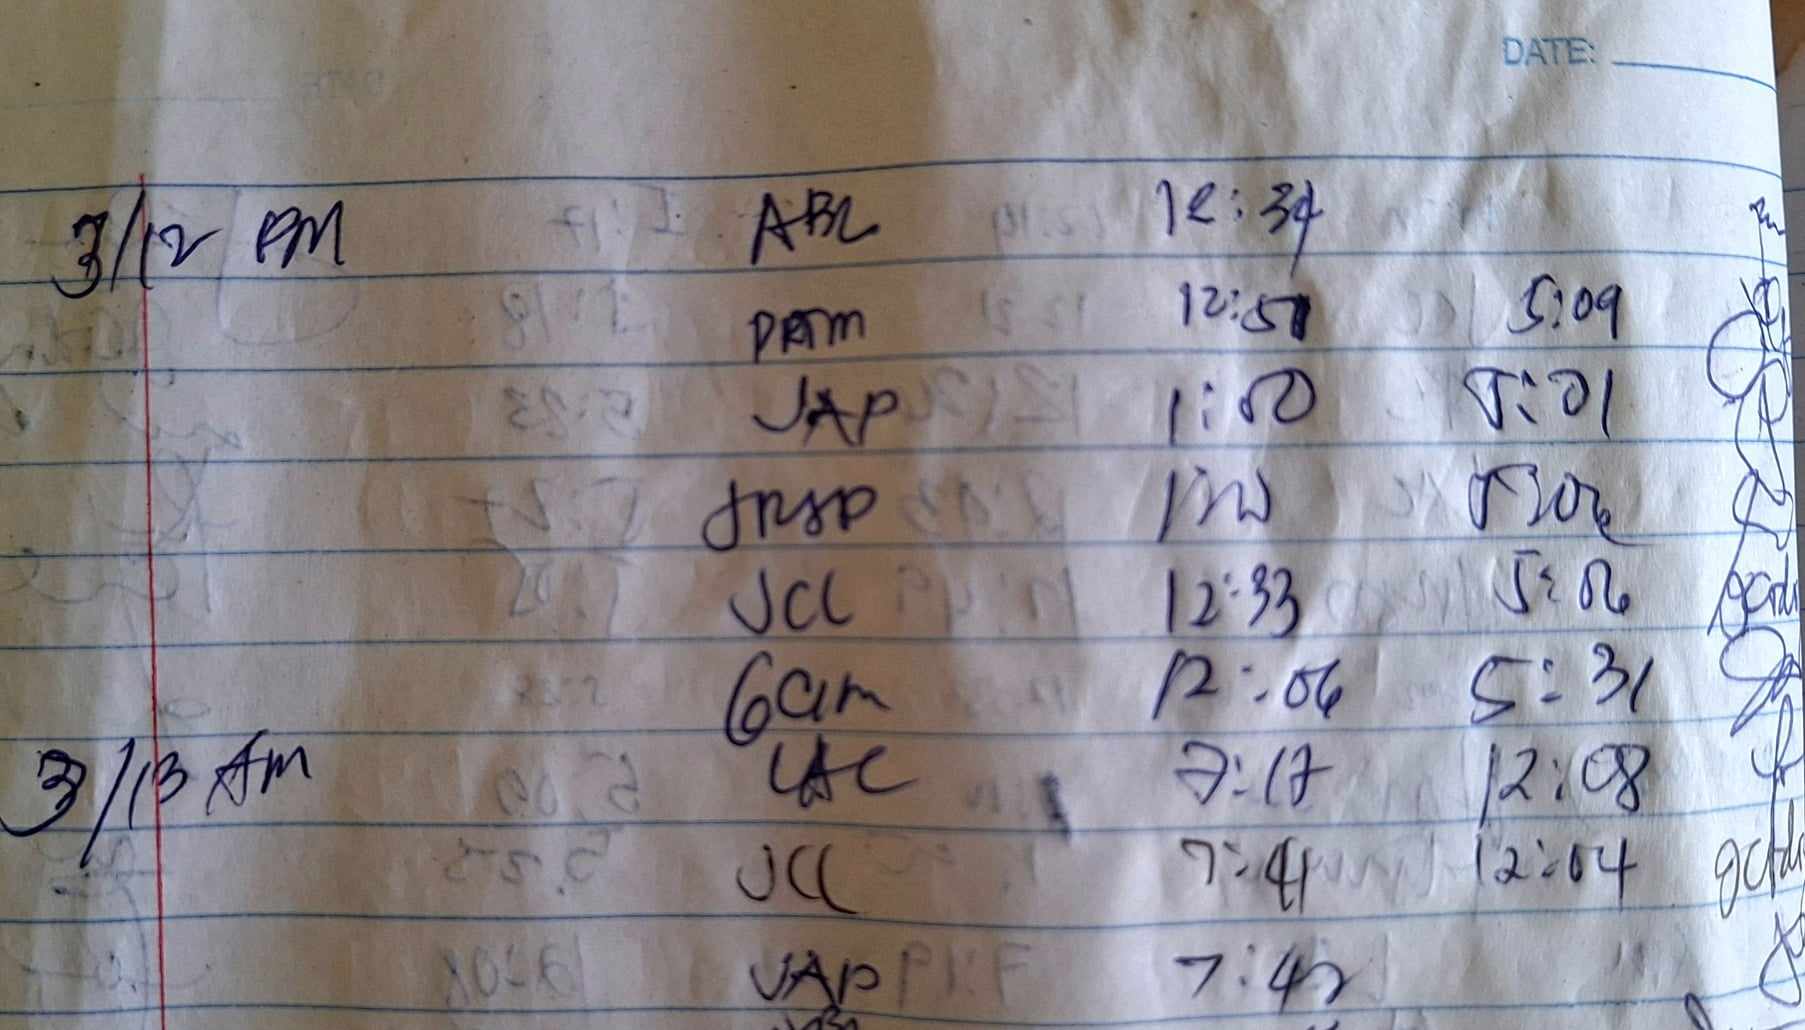 DATE:
3/12 PM ABL 12:34
PRTM 12:51 5:09
JAP 1:00 5:01
JRSP 5:06
JCL 12:33 5:06
Gam 12:06 5:31
3/13 Am LAC 7:17 12:08
JCL 7:41 12:04
JAP 7:42